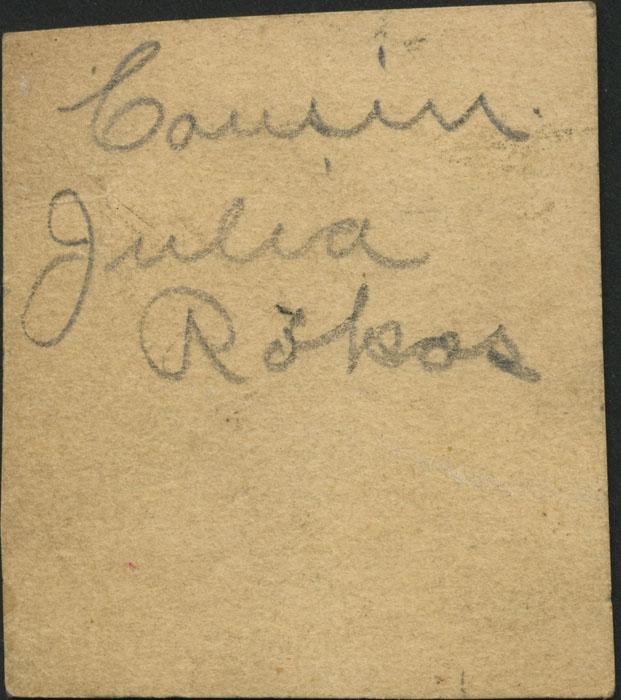 Cousin
Julia
Rökos